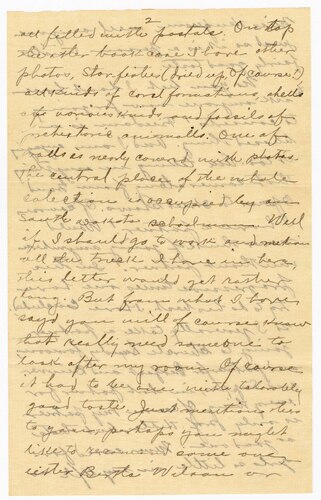 2
all filled with postals. On top
book case I have other
photos, Star fishes (dried up of course!)
all kinds of coral formations, shells
of various kinds and fossils of
prehistoric animals. One of
walls is nearly covered with photos
The central place of the whole
colection is occupied by a
South Dakota schoolmam. Well
if I should go to work and mention
all the truck I have in here,
this letter would get rather
But from what I have
sayd you will of course know
that really need someone to
look after my room. Of course
it had to be one with tolerably
good taste. Just mention this
to you, perhaps you might
like to recommend some one,
either Bertha Wilson or